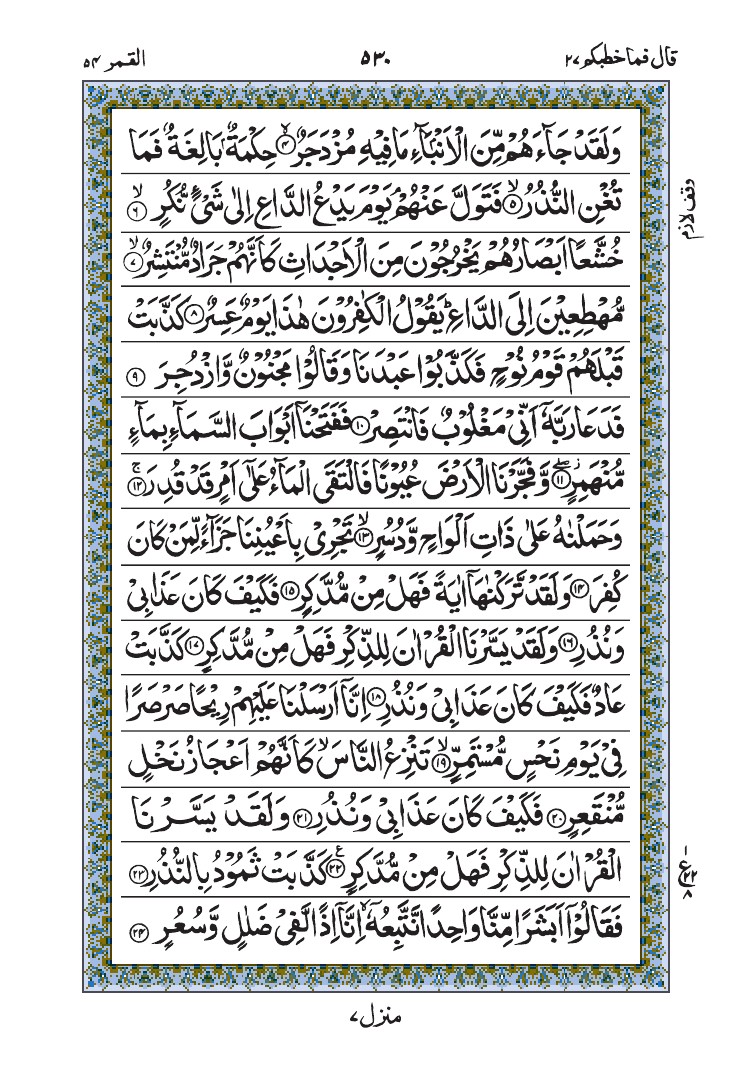 قال فما خطبكم ٢٧
٥٣٠
القمر ٥٤
وَلَقَدْ جَآءَهُمْ مِّنَ الْاَنْۢبَآءِ مَا فِيْهِ مُزْدَجَرٌ ۙ‏﴿۴﴾ حِكْمَةٌۢ بَالِغَةٌ‌ فَمَا
تُغْنِ النُّذُرُۙ‏﴿۵﴾ فَتَوَلَّ عَنْهُمْ‌ۘ يَوْمَ يَدْعُ الدَّاعِ اِلٰى شَىْءٍ نُّكُرٍۙ‏﴿۶﴾
خُشَّعًا اَبْصَارُهُمْ يَخْرُجُوْنَ مِنَ الْاَجْدَاثِ كَاَنَّهُمْ جَرَادٌ مُّنْتَشِرٌۙ‏﴿۷﴾
مُّهْطِعِيْنَ اِلَى الدَّاعِ‌ؕ يَقُوْلُ الْكٰفِرُوْنَ هٰذَا يَوْمٌ عَسِرٌ‏﴿۸﴾ كَذَّبَتْ
قَبْلَهُمْ قَوْمُ نُوْحٍ فَكَذَّبُوْا عَبْدَنَا وَقَالُوْا مَجْنُوْنٌ وَّازْدُجِرَ‏﴿۹﴾
فَدَعَا رَبَّهٗۤ اَنِّىْ مَغْلُوْبٌ فَانْتَصِرْ‏﴿۱۰﴾ فَفَتَحْنَاۤ اَبْوَابَ السَّمَآءِ بِمَآءٍ
مُّنْهَمِرٍ ۖ‏﴿۱۱﴾ وَّفَجَّرْنَا الْاَرْضَ عُيُوْنًا فَالْتَقَى الْمَآءُ عَلٰٓى اَمْرٍ قَدْ قُدِرَ‌ۚ‏﴿۱۲﴾
وَحَمَلْنٰهُ عَلٰى ذَاتِ اَلْوَاحٍ وَّدُسُرٍۙ‏﴿۱۳﴾ تَجْرِىْ بِاَعْيُنِنَا جَزَآءً لِّمَنْ كَانَ
كُفِرَ‏﴿۱۴﴾ وَلَقَدْ تَّرَكْنٰهَاۤ اٰيَةً فَهَلْ مِنْ مُّدَّكِرٍ‏﴿۱۵﴾ فَكَيْفَ كَانَ عَذَابِىْ
وَنُذُرِ‏﴿۱۶﴾ وَلَقَدْ يَسَّرْنَا الْقُرْاٰنَ لِلذِّكْرِ فَهَلْ مِنْ مُّدَّكِرٍ‏﴿۱۷﴾ كَذَّبَتْ
عَادٌ فَكَيْفَ كَانَ عَذَابِىْ وَنُذُرِ‏﴿۱۸﴾ اِنَّاۤ اَرْسَلْنَا عَلَيْهِمْ رِيْحًا صَرْصَرًا
فِىْ يَوْمِ نَحْسٍ مُّسْتَمِرٍّۙ‏﴿۱۹﴾ تَنْزِعُ النَّاسَۙ كَاَنَّهُمْ اَعْجَازُ نَخْلٍ
مُّنْقَعِرٍ‏﴿۲۰﴾ فَكَيْفَ كَانَ عَذَابِىْ وَنُذُرِ‏﴿۲۱﴾ وَلَقَدْ يَسَّرْنَا
الْقُرْاٰنَ لِلذِّكْرِ فَهَلْ مِنْ مُّدَّكِرٍ‏﴿۲۲﴾ كَذَّبَتْ ثَمُوْدُ بِالنُّذُرِ‏﴿۲۳﴾
فَقَالُوْۤا اَبَشَرًا مِّنَّا وَاحِدًا نَّتَّبِعُهٗۤ ۙ اِنَّاۤ اِذًا لَّفِىْ ضَلٰلٍ وَّسُعُرٍ‏﴿۲۴﴾
وقف لازم
ع ٢٢ ٨
منزل ٧